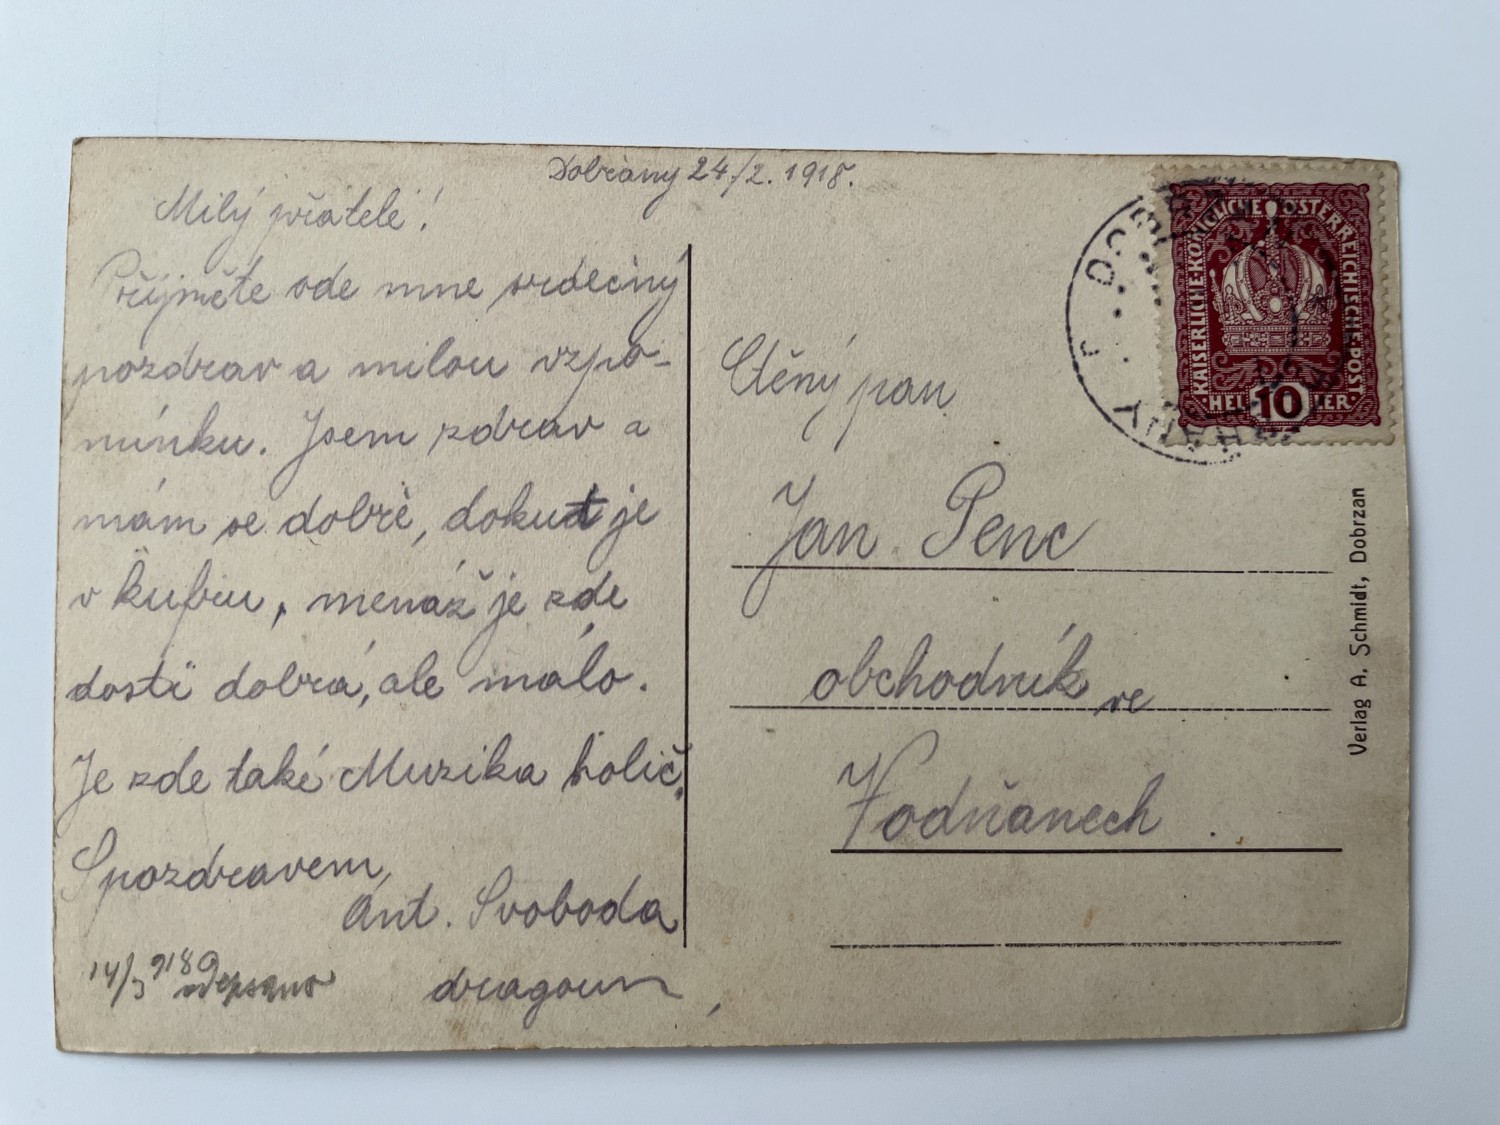 Dobřany 24./2. 1918.
Milý přátelé!
Přijměte ode mne srdečný
pozdrav a milou vzpo-
mínku. Jsem zdrav a
mám se dobře, dokud je
v kufru, menáž je zde
dosti dobrá, ale málo.
Je zde také Muzika holič.
S pozdravem,
Ant. Svoboda
dragoun
14/3 918 odepsano
Ctěný pan
Jan Penc
obchodník ve
Vodňanech.
KAISERLICHE KÖNIGLICHE ÖSTERREICHISCHE POST
10
Verlag A. Schmidt, Dobrzan